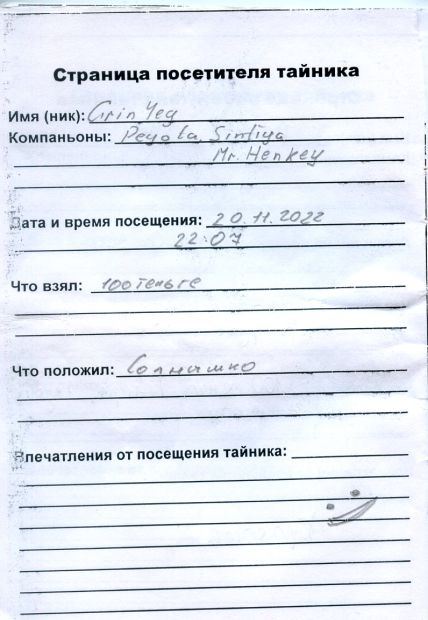 Страница посетителя тайника
Имя (ник): Grin Yeg
Компаньоны: Peyota, Sintiya
Mr. Henkey
Дата и время посещения: 20.11.2022
22:07
Что взял: 100 теньге
Что положил: Солнышко
Впечатления от посещения тайника: